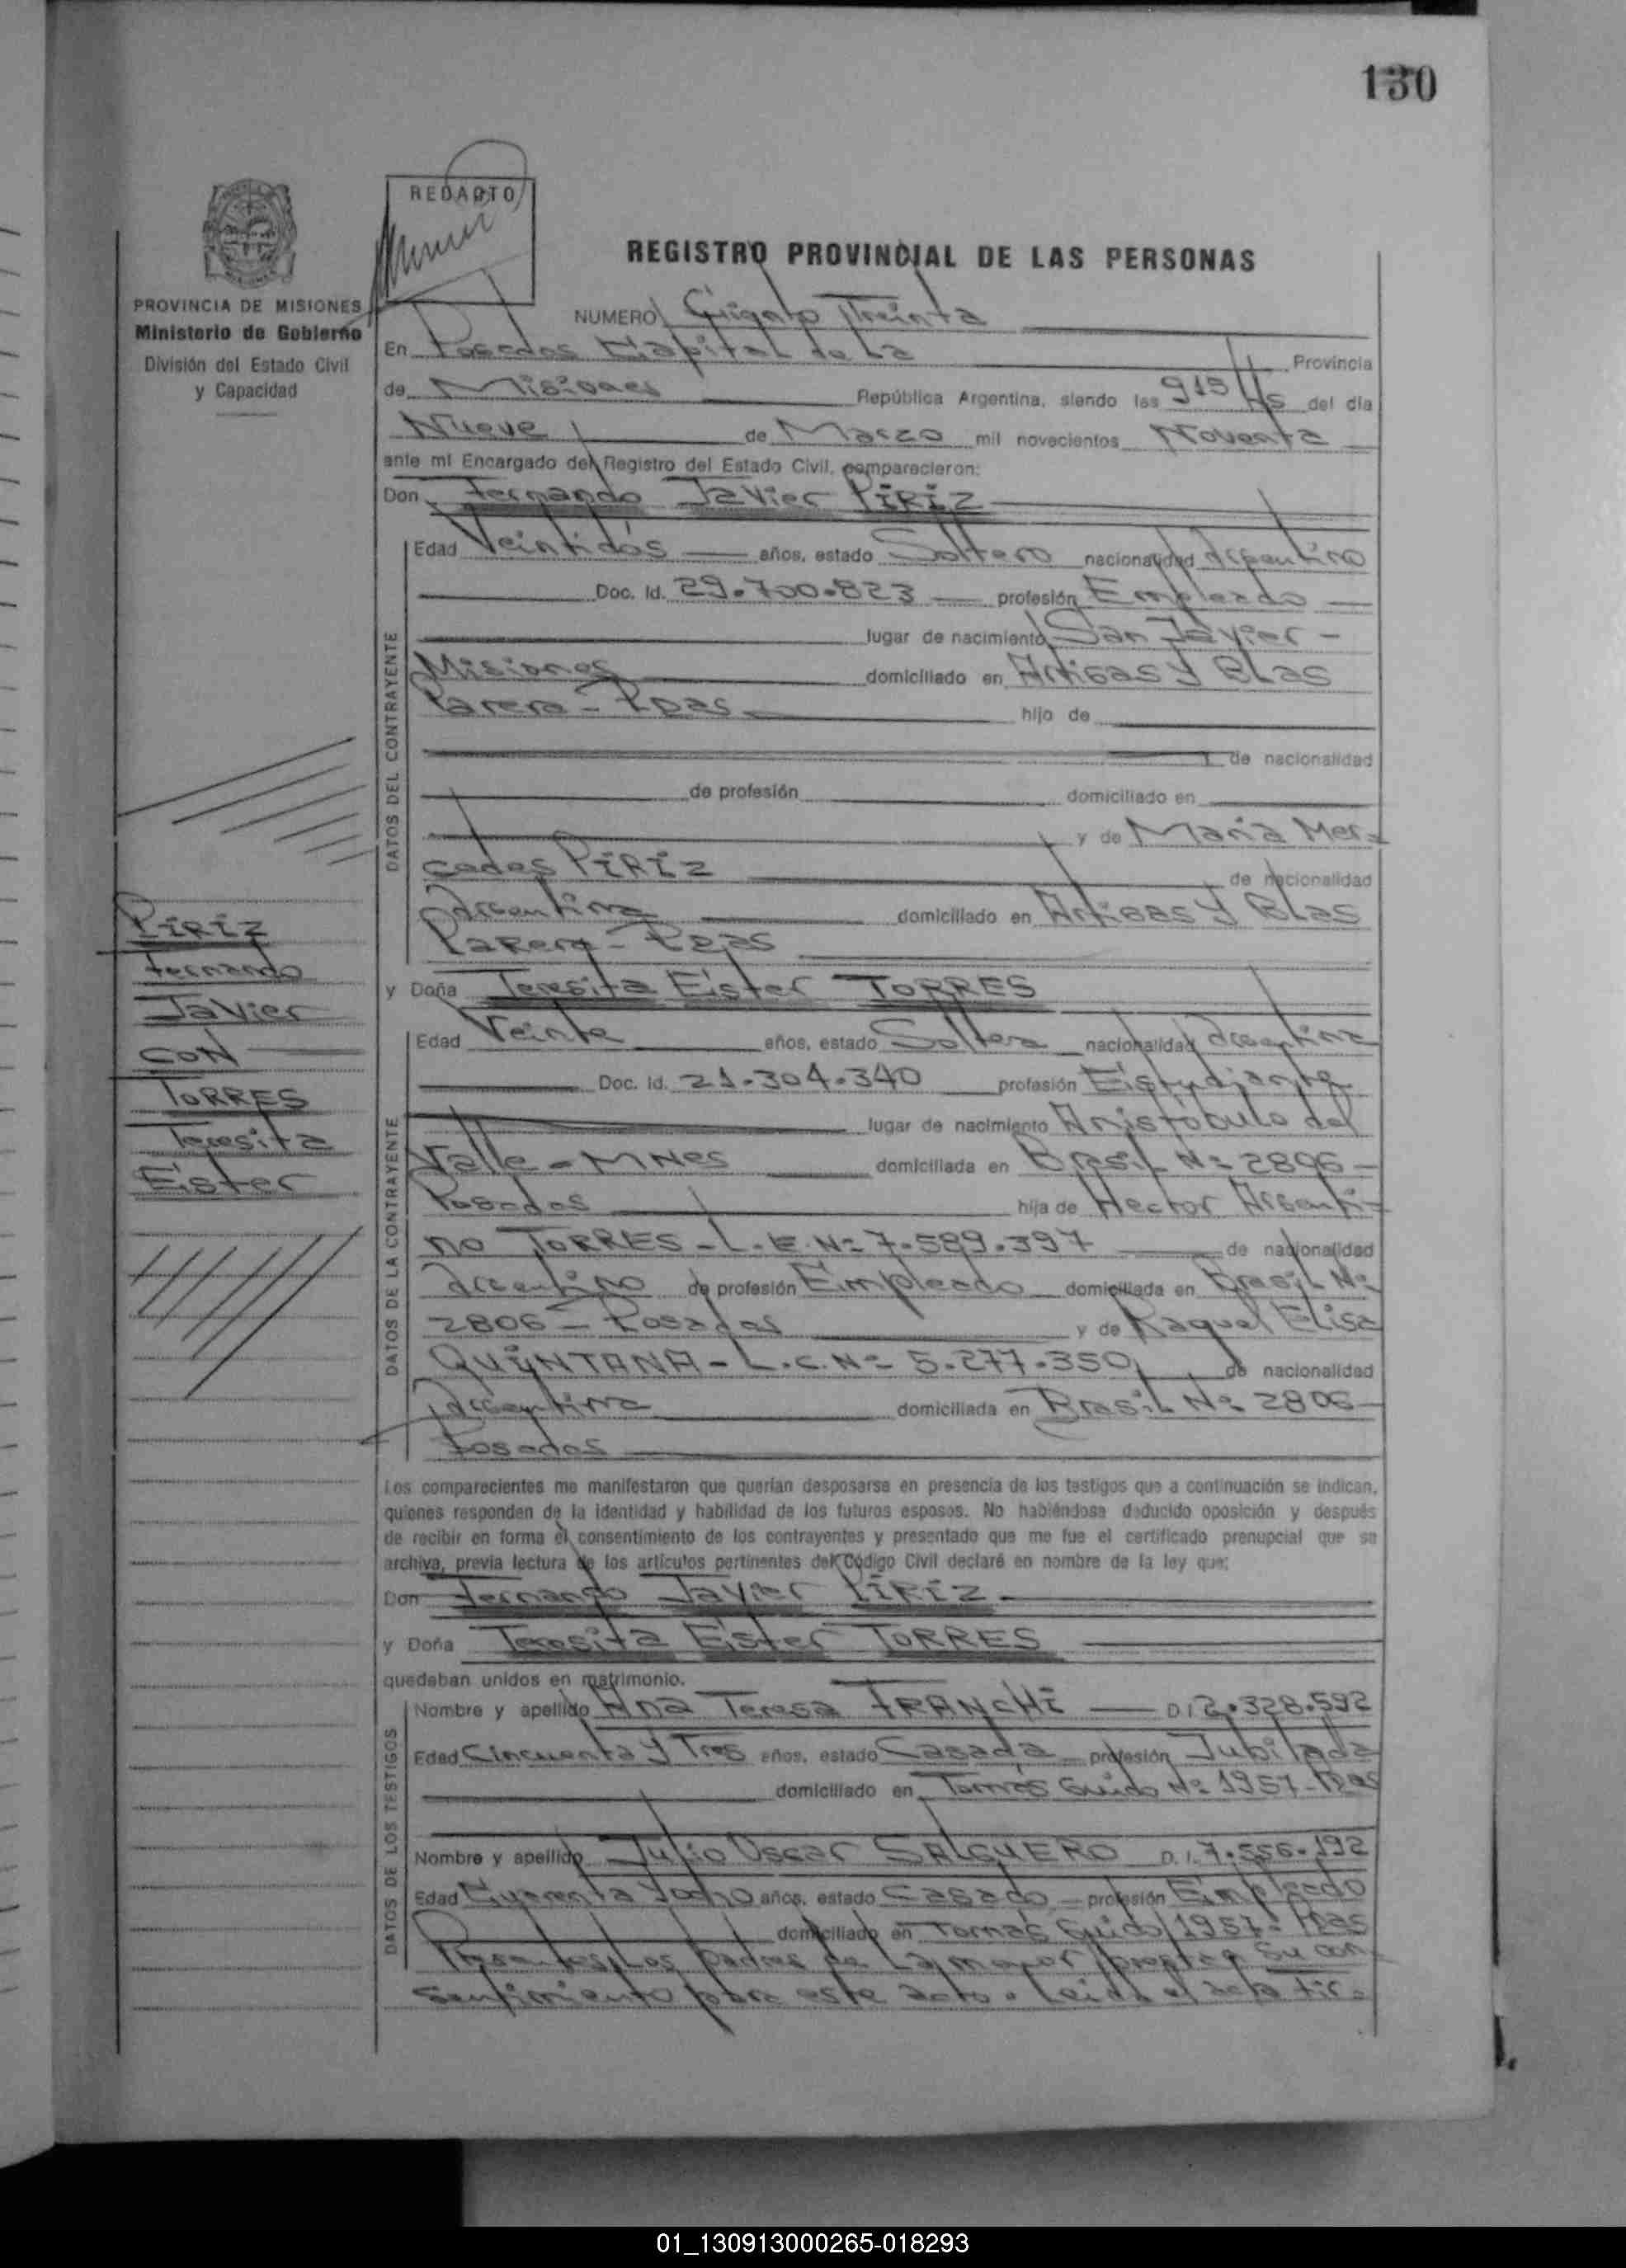 130
REDACTO
REGISTRO PROVINCIAL DE LAS PERSONAS
PROVINCIA DE MISIONES
Ministerio de Gobierno
División del Estado Civil
y Capacidad
NUMERO Ciento Treinta
En Posadas Capital de La Provincia
de Misiones República Argentina, siendo las 915 Hs del día
Nueve de Marzo mil novecientos Noventa
ante mi Encargado del Registro del Estado Civil, comparecieron:
Don Fernando Javier PÍRÍZ
DATOS DEL CONTRAYENTE
Edad Veintidós años, estado Soltero nacionalidad Argentino
Doc. Id. 29.700.823 profesión Empleado
lugar de nacimiento San Javier -
Misiones domiciliado en Artigas y Blas
Parera - Pdas hijo de
de nacionalidad
de profesión domiciliado en
y de María Mer=
cedes PÍRÍZ de nacionalidad
Argentina domiciliado en Artigas y Blas
Parera - Pdas
PÍRÍZ
Fernando
Javier
CON
TORRES
Teresita
Ester
y Doña Teresita Ester TORRES
DATOS DE LA CONTRAYENTE
Edad Veinte años, estado Soltera nacionalidad Argentina
Doc. Id. 21.304.340 profesión Estudiante
lugar de nacimiento Aristóbulo del
Valle - MNes domiciliada en Brasil Nº 2806 -
Posadas hija de Hector Argenti=
no TORRES - L.E. Nº 7.589.397 de nacionalidad
Argentino de profesión Empleado domiciliada en Brasil Nº
2806 - Posadas y de Raquel Elisa
QUINTANA - L.C. Nº 5.277.350 de nacionalidad
Argentina domiciliada en Brasil Nº 2806 -
Posadas
Los comparecientes me manifestaron que querían desposarse en presencia de los testigos que a continuación se indican,
quienes responden de la identidad y habilidad de los futuros esposos. No habiéndose deducido oposición y después
de recibir en forma el consentimiento de los contrayentes y presentado que me fue el certificado prenupcial que se
archiva, previa lectura de los artículos pertinentes del Código Civil declaré en nombre de la ley que:
Don Fernando Javier PÍRÍZ
y Doña Teresita Ester TORRES
quedaban unidos en matrimonio.
DATOS DE LOS TESTIGOS
Nombre y apellido Ana Teresa FRANCHI D.I 2.328.592
Edad Cincuenta y Tres años, estado Casada profesión Jubilada
domiciliado en Tomás Guido Nº 1957 - Pdas
Nombre y apellido Julio Oscar SALGUERO D.I. 7.556.192
Edad Cuarenta y ocho años, estado Casado profesión Empleado
domiciliado en Tomás Guido 1957 - Pdas
Presentes Los padres de La menor prestan su con
sentimiento para este acto. Leída el acta fir=
01_130913000265-018293